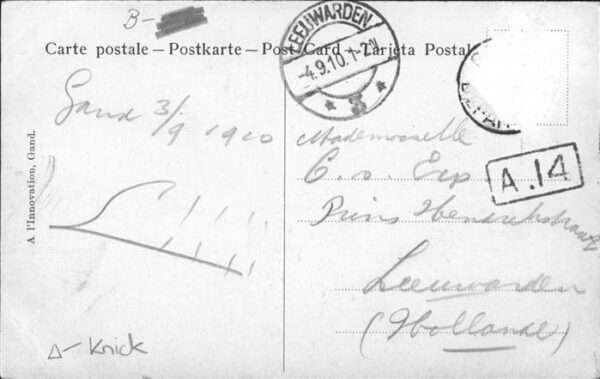 B-
Carte postale — Postkarte — Post Card — Tarjeta Postal
LEEUWARDEN
-4.9.10.1-2N
3
Gand 3/9 1910
Mademoiselle
C. v. Erp
Prins Hendrikstraat
Leeuwarden
(Hollande)
A.14
DEPART
A l'Innovation, Gand.
Δ- Knick